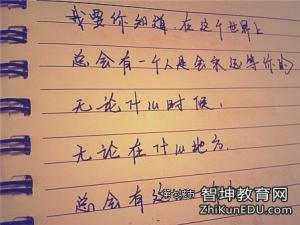 我要你知道,在这个世界上
总会有一个人是会永远等你的
无论什么时候,
无论在什么地方.
总会有这
智坤教育网
ZhiKunEDU.com